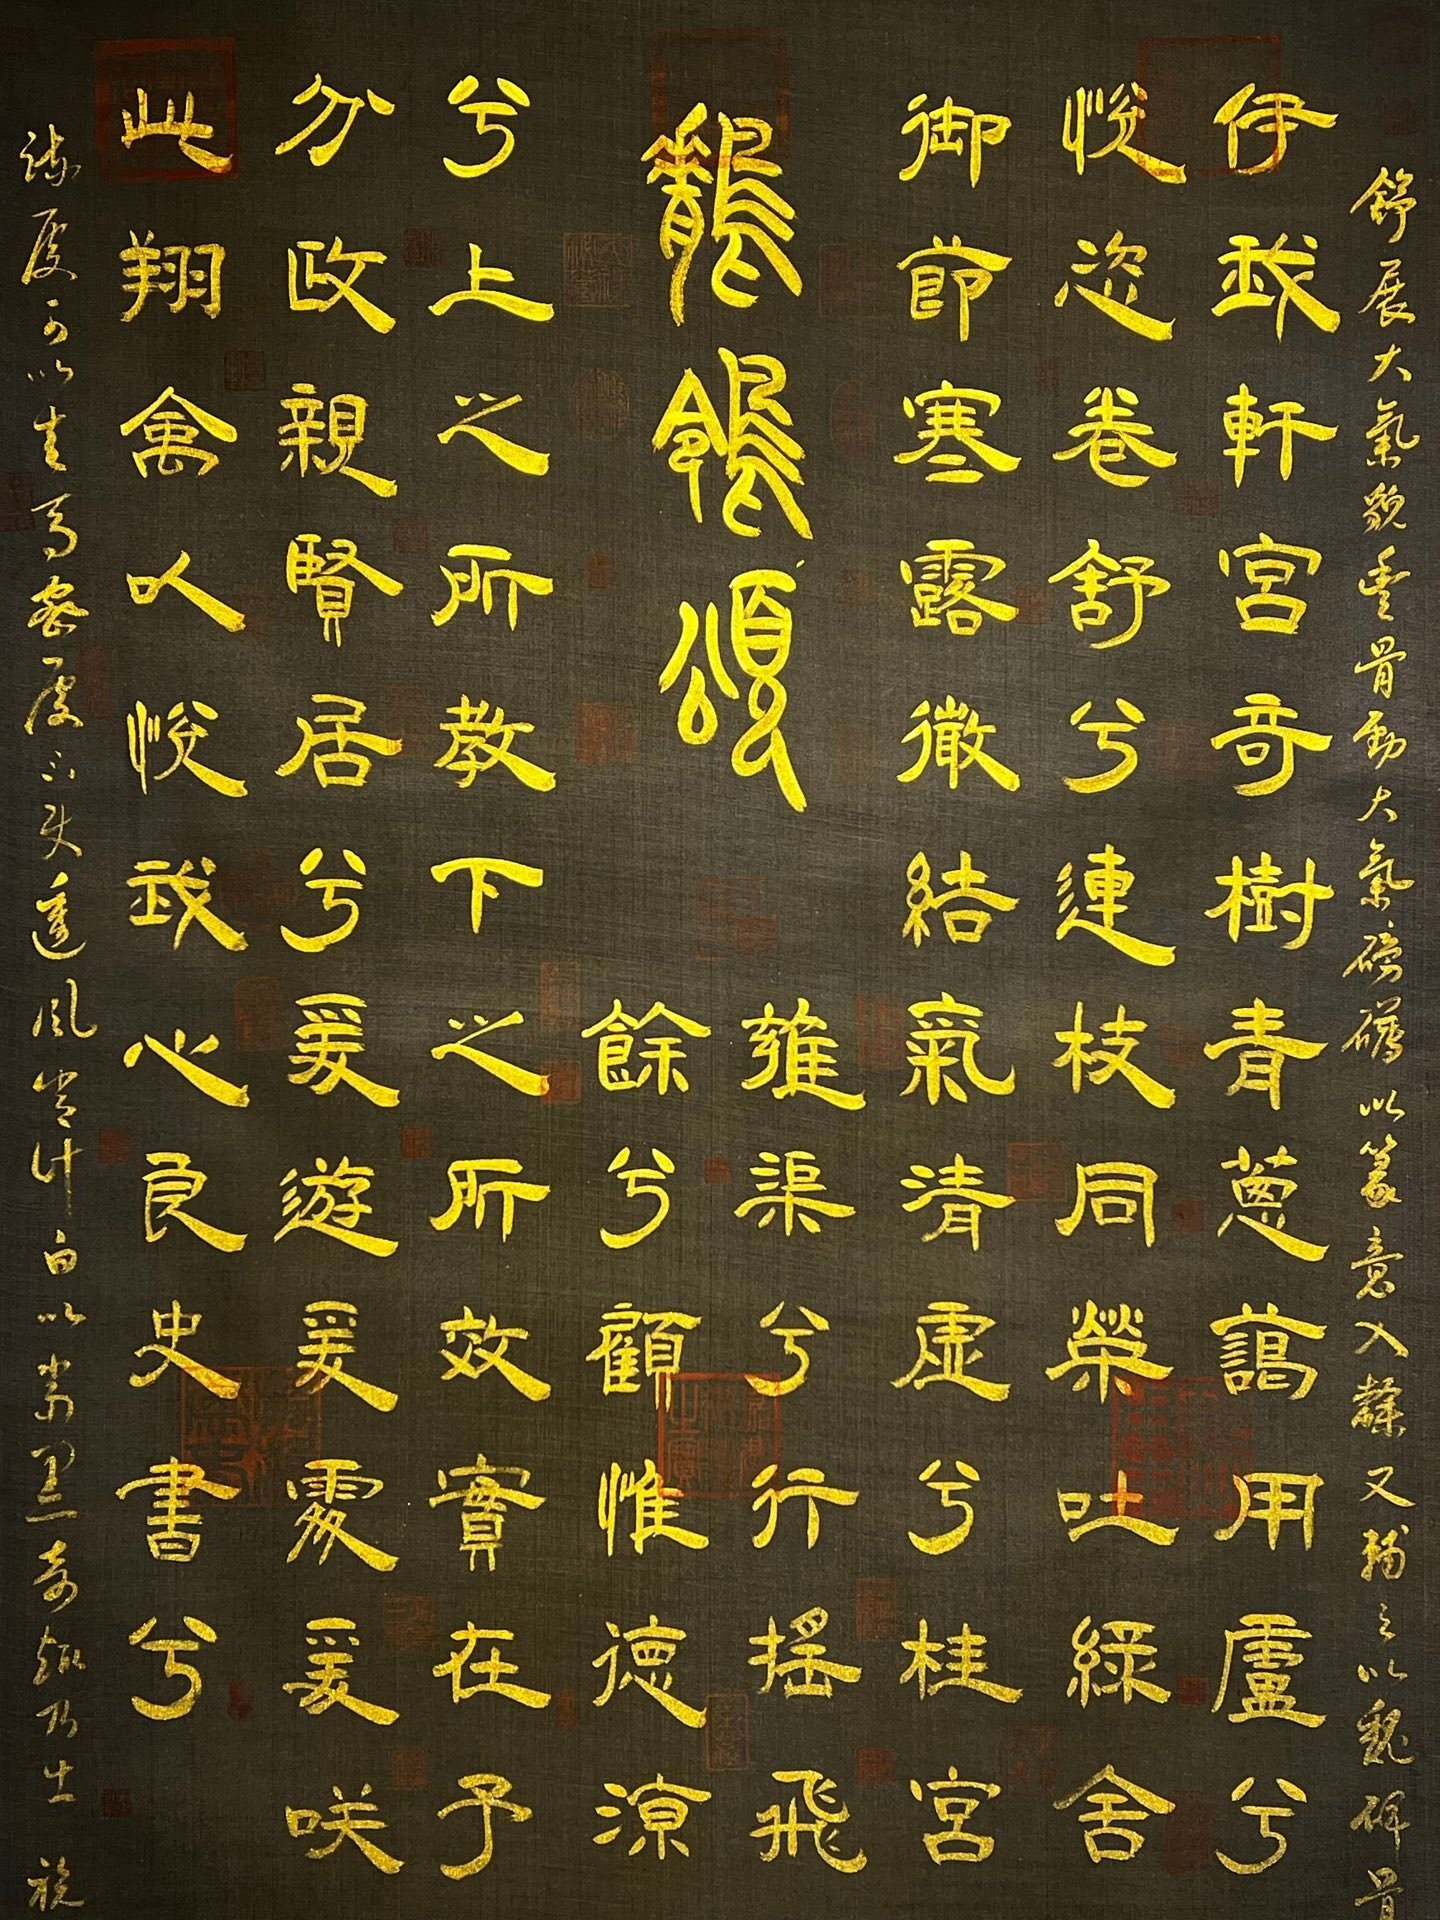 舒展大氣貌豐骨動大氣磅礴以篆意入隸又輔之以魏碑骨
伊我軒宮奇樹青蔥藹用廬兮
悅恣卷舒兮連枝同榮吐綠舍
御節寒露微結氣清虛兮桂宮
雍渠兮行搖飛
鶺鴒頌
餘兮顧惟德涼
兮上之所教下之所效實在予
分政親賢居兮爰遊爰處爰咲
此翔禽以悅我心良史書兮
疏處可以走馬密處不使透風常計白以當黑奇趣乃出